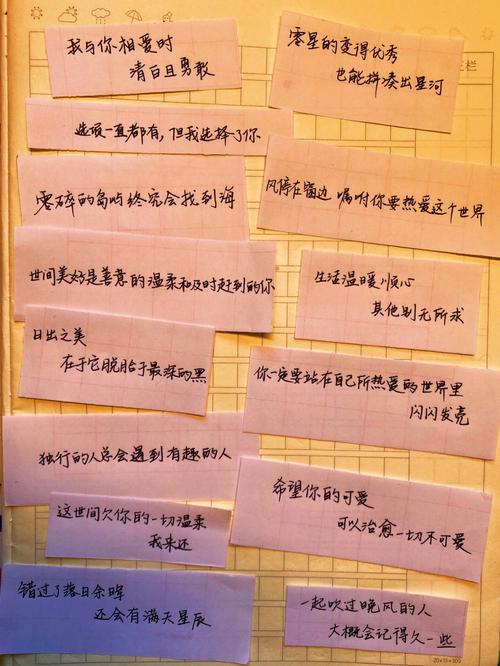 我与你相爱时
清白且勇敢
零星的变得优秀
也能拼凑出星河
选项一直都有,但我选择了你
零碎的岛屿终究会找到海
风停在窗边 嘱咐你要热爱这个世界
世间美好是善意的温柔和及时赶到的你
生活温暖顺心
其他别无所求
日出之美
在于它脱胎于最深的黑
你一定要站在自己所热爱的世界里
闪闪发亮
独行的人总会遇到有趣的人
希望你的可爱
可以治愈一切不可爱
这世间欠你的一切温柔
我来还
错过了落日余晖
还会有满天星辰
一起吹过晚风的人
大概会记得久一些
20×15=300